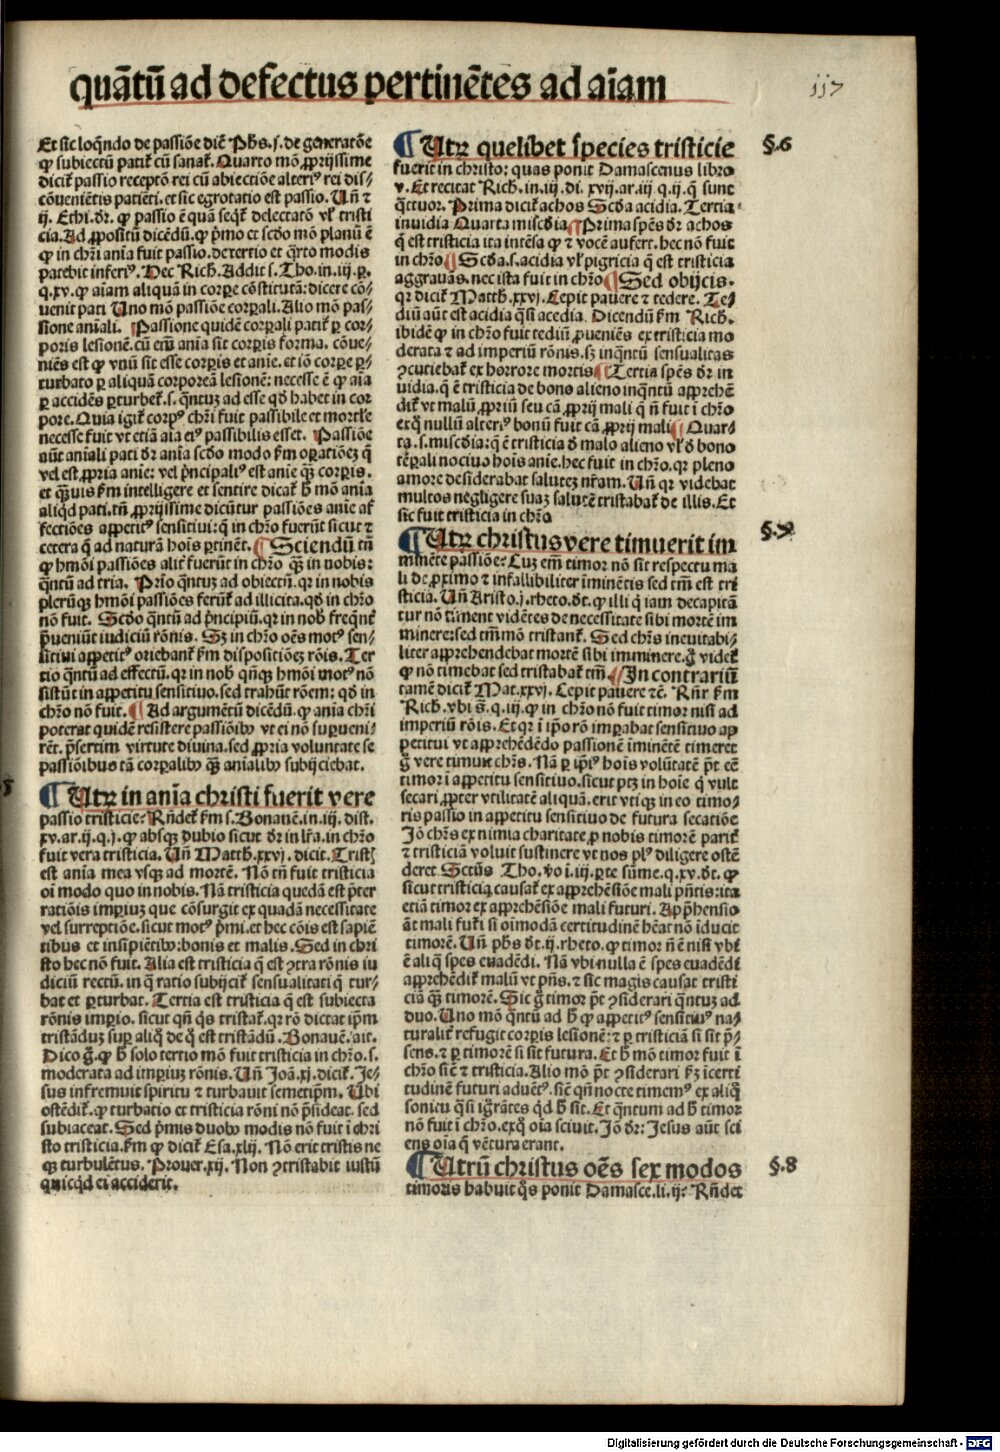 quātū ad defectus pertinētes ad aīam
117
Et sic loq̄ndo de passiōe diē Phs.j.de generatōe
ꝙ subiectū patiť cū sanať. Quarto mō ꝓprijssime
diciť passio receptō rei cū abiectiōe alteriꝰ rei dis/
cōueniētis patiēti. et sic egrotatio est passio. Uñ ⁊
ij. Ethi. dr̄. ꝙ passio ē quā seqť delectatō vľ tristi
cia. Ad ꝓpositū dicēdū. ꝙ pͥmo et scdo mō planū ē
ꝙ in chr̄i anīa fuit passio. de tertio et q̄rto modis
patebit inferiꝰ. Hec Rich. Addit s. Tho. in. iij. ꝑ.
q. xv. ꝙ aīam aliquā in corꝑe cōstitutā: dicere cōͤ/
uenit pati Uno mō passiōe corꝑali. Alio mō pas/
sione anīali. ¶Passione quidē corꝑali patiť ꝑ cor/
poris lesionē. cū em̄ anīa sit corꝑis forma. cōue/
niēs est ꝙ vnū sit esse corꝑis et anīe. et iō corꝑe ꝑ/
turbato ꝑ aliquā corporeā lesionē: necesse ē ꝙ aīa
ꝑ accidēs ꝑturbeť. s. q̄ntuꝫ ad esse qd̄ habet in cor
pore. Quia igiť corpꝰ chr̄i fuit passibile et mortl̄e
necesse fuit vt etiā aīa eiꝰ passibilis esset. ¶Passiōe
aūt anīali pati dr̄ anīa scdo modo ẜm oꝑationeꝫ q̄
vel est ꝓpria anīe: vel pͥncipaliꝰ est anīe qꝫ corꝑis.
et q̄ꝫuis ẜm intelligere et sentire dicať ħ mō anīa
aliqd̄ pati. tn̄ ꝓprijssime dicūtur passiōes anīe af
fectiōes appetitꝰ sensitiui: q̄ in chr̄o fuerūt sicut ⁊
cetera q̄ ad naturā hoīs ꝑtinēt. ¶Sciendū tn̄
ꝙ hmōi passiōes aliť fuerūt in chr̄o qꝫ in nobis:
q̄ntū ad tria. Prīo q̄ntuꝫ ad obiectū. qꝛ in nobis
plerūqꝫ hmōi passiōes feruť ad illicita. qd̄ in chr̄o
nō fuit. Scdo q̄ntū ad pͥncipiū. qꝛ in nob̄ freq̄nť
p̄ueniūt iudiciū rōnis. Sꝫ in chr̄o oēs motꝰ sen/
sitiui appetitꝰ oriebanť ẜm dispositiōeꝫ rōis. Ter
tio q̄ntū ad effectū. qꝛ in nob̄ qn̄qꝫ hmōi motꝰ nō
sistūt in appetitu sensitiuo. sed trahūt rōem: qd̄ in
chr̄o nō fuit. ¶Ad argumētū dicēdū. ꝙ anīa chr̄i
poterat quidē resistere passiōibꝰ vt ei nō suꝑueni/
rēt. p̄sertim virtute diuina. sed ꝓpria voluntate se
passiōibus tā corꝑalibꝰ qꝫ anīalibꝰ subijciebat.
¶Utꝝ in anīa christi fuerit vere
passio tristicie? Rn̄deť ẜm s. Bonauē. in. iij. dist.
xv. ar. ij. q. j. ꝙ absqꝫ dubio sicut dr̄ in lr̄a. in chr̄o
fuit vera tristicia. Uñ Matth. xxvj. dicit. Tristꝭ
est anīa mea vsqꝫ ad mortē. Nō tn̄ fuit tristicia
oī modo quo in nobis. Nā tristicia quedā est p̄ter
rationis imꝑiuꝫ que cōsurgit ex quadā necessitate
vel surreptiōe. sicut motꝰ pͥmi. et hec cōis est sapiē
tibus et insipiētibꝰ: bonis et malis. Sed in chri
sto hec nō fuit. Alia est tristicia q̄ est ꝯtra rōnis iu
diciū rectū. in q̄ ratio subijciť sensualitati q̄ tur/
bat et ꝑturbat. Tertia est tristicia q̄ est subiecta
rōnis imꝑio. sicut qn̄ q̄s tristať. qꝛ rō dictat ip̄m
tristāduꝫ suꝑ aliq̄ de q̄ est tristādū. Bonauē. ait.
Dico g̊. ꝙ ħ solo tertio mō fuit tristicia in chr̄o. s.
moderata ad imꝑiuꝫ rōnis. Uñ Joā. xj. diciť. Je/
sus infremuit spiritu ⁊ turbauit semetip̄m. Ubi
ostēdiť. ꝙ turbatio et tristicia rōni nō p̄sideat. sed
subiaceat. Sed pͥmis duobꝰ modis nō fuit ī chri
sto tristicia. ẜm ꝙ diciť Esa. xlij. Nō erit tristis ne
qꝫ turbulētus. Prouer. xij. Non ꝯtristabit iustū
quicqd̄ ei acciderit.
§.6
¶Utꝝ quelibet species tristicie
fuerit in christo: quas ponit Damascenus libro
v. Et recitat Rich. in. iij. di. xvij. ar. iij. q. ij. q̄ sunt
q̄ttuor. Prima diciť achos Scd̄a acidia. Tertia
inuidia Quarta misc̄dia ¶Prima spēs dr̄ achos
q̄ est tristicia ita intēsa ꝙ ⁊ vocē aufert. hec nō fuit
in chr̄o ¶Scd̄a. s. acidia vľ pigricia q̄ est tristicia
aggrauās. nec ista fuit in chr̄o ¶Sed obijcis.
qꝛ diciť Matth. xxvj. Cepit pauere ⁊ tedere. Te/
diū aūt est acidia q̄si acedia. Dicendū ẜm Rich.
ibidē ꝙ in chr̄o fuit tediū ꝓueniēs ex tristicia mo
derata ⁊ ad imperiū rōnis. sꝫ inq̄ntū sensualitas
ꝯcutiebať ex horrore mortis ¶Tertia spēs dr̄ in
uidia. q̄ ē tristicia de bono alieno inq̄ntū apprehē
diť vt malū ꝓpriū seu cā ꝓprij mali q̄ n̄ fuit ī chr̄o
ex q̄ nullū alteriꝰ bonū fuit cā ꝓprij mali ¶Quar/
ta. s. misc̄dia: q̄ ē tristicia d̄ malo alieno vľ d̄ bono
tēꝑali nociuo hoīs anīe. hec fuit in chr̄o. qꝛ pleno
amore desiderabat saluteꝫ nr̄am. Uñ qꝛ videbat
multos negligere suaꝫ salutē tristabať de illis. Et
sic fuit tristicia in chr̄o
§.7
¶Utꝝ christus vere timuerit im
minēte passiōe? Cuꝫ em̄ timor nō sit respectu ma
li de ꝓximo ⁊ infallibiliter īminētis sed tm̄ est tri
sticia. Uñ Aristo. j. rheto. dt̄. ꝙ illi q̄ iam decapitā
tur nō timent vidētes de necessitate sibi mortē im
minere: sed tm̄mō tristanť. Sed chr̄s ineuitabi/
liter apprehendebat mortē sibi imminere. g̊ videť
ꝙ nō timebat sed tristabať tm̄. ¶In contrariū
tamē diciť Mat. xxvj. Cepit pauere ⁊c̄. Rn̄r ẜm
Rich. vbi s̄. q. iij. ꝙ in chr̄o nō fuit timor nisi ad
imperiū rōis. Et qꝛ ī ip̄o rō imꝑabat sensitiuo ap
petitui vt apprehēdēdo passionē iminētē timeret
g̊ vere timuit chr̄s. Nā ꝑ ip̄iꝰ hoīs volūtatē p̄t eē
timor ī appetitu sensitiuo. sicut ptꝫ in hoīe q̄ vult
secari ꝓpter vtilitatē aliquā. erit vtiqꝫ in eo timo/
ris passio in appetitu sensitiuo de futura secatiōe
Jō chr̄s ex nimia charitate ꝓ nobis timorē pariť
⁊ tristiciā voluit sustinere vt nos plꝰ diligere ostē
deret Sctūs Tho. vo ī. iij. ꝑte sūme. q. xv. dt̄. ꝙ
sicut tristicia causať ex apprehēsiōe mali p̄ntis: ita
etiā timor ex apprehēsiōe mali futuri. Apprehensio
āt mali futuri si oīmodā certitudinē hēat nō īducit
timorē. Uñ phs dt̄. ij. rheto. ꝙ timor n̄ ē nisi vbi
ē aliq̄ spes euadēdi. Nā vbi nulla ē spes euadēdi
apprehēdiť malū vt pn̄s. ⁊ sic magis causat tristi
ciā qꝫ timorē. Sic g̊ timor p̄t ꝯsiderari q̄ntuꝫ ad
duo. Uno mō q̄ntū ad ħ ꝙ appetitꝰ sensitiuꝰ na/
turaliť refugit corꝑis lesionē: ⁊ ꝑ tristiciā si sit p̄/
sens. ⁊ ꝑ timorē si sit futura. Et ħ mō timor fuit ī
chr̄o sic̄ ⁊ tristicia. Alio mō p̄t ꝯsiderari ẜꝫ īcerti
tudinē futuri aduētꝰ. sic̄ qn̄ nocte timemꝰ ex aliq̄
sonitu q̄si ignorātes qd̄ ħ sit. Et q̄ntum ad ħ timor
nō fuit ī chr̄o. ex q̄ oīa sciuit. Jō dr̄: Jesus aūt sci
ens oīa q̄ vētura erant.
§.8
¶Utrū christus oēs sex modos
timoris habuit q̄s ponit Damasce. li. ij? Rn̄deť
Digitalisierung gefördert durch die Deutsche Forschungsgemeinschaft - DFG